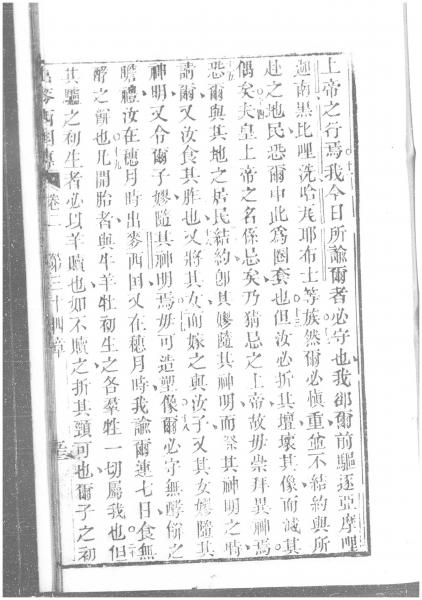 上帝之行焉我今日所諭爾者必守也我卻爾前驅逐亞摩哩
迦南黑比哩洗哈〇耶布士等族然爾必慎重愈不結約與所
赴之地民恐爾中此為圈套也但汝必折其壇壞其像而滅其
偶矣夫皇上帝之名係忌矣乃猜忌之上帝故毋崇拜異神焉
恐爾與其地之居民結約卽其嫪隨其神明而祭其神明之時
請爾又汝食其胙也又將其女而嫁之與汝子又其女嫪隨其
神明又令爾子嫪隨其神明焉毋可造塑像爾必守無酵餅之
瞻禮汝在穗月時出麥西國又在穗月時我諭爾連七日食無
酵之餅也凡開胎者與牛羊牡初生之各羣牲一切屬我也但
其驢之初生者必以羊贖也如不贖之折其頸可也爾子之初
麥西國傳 卷二 第三十四章